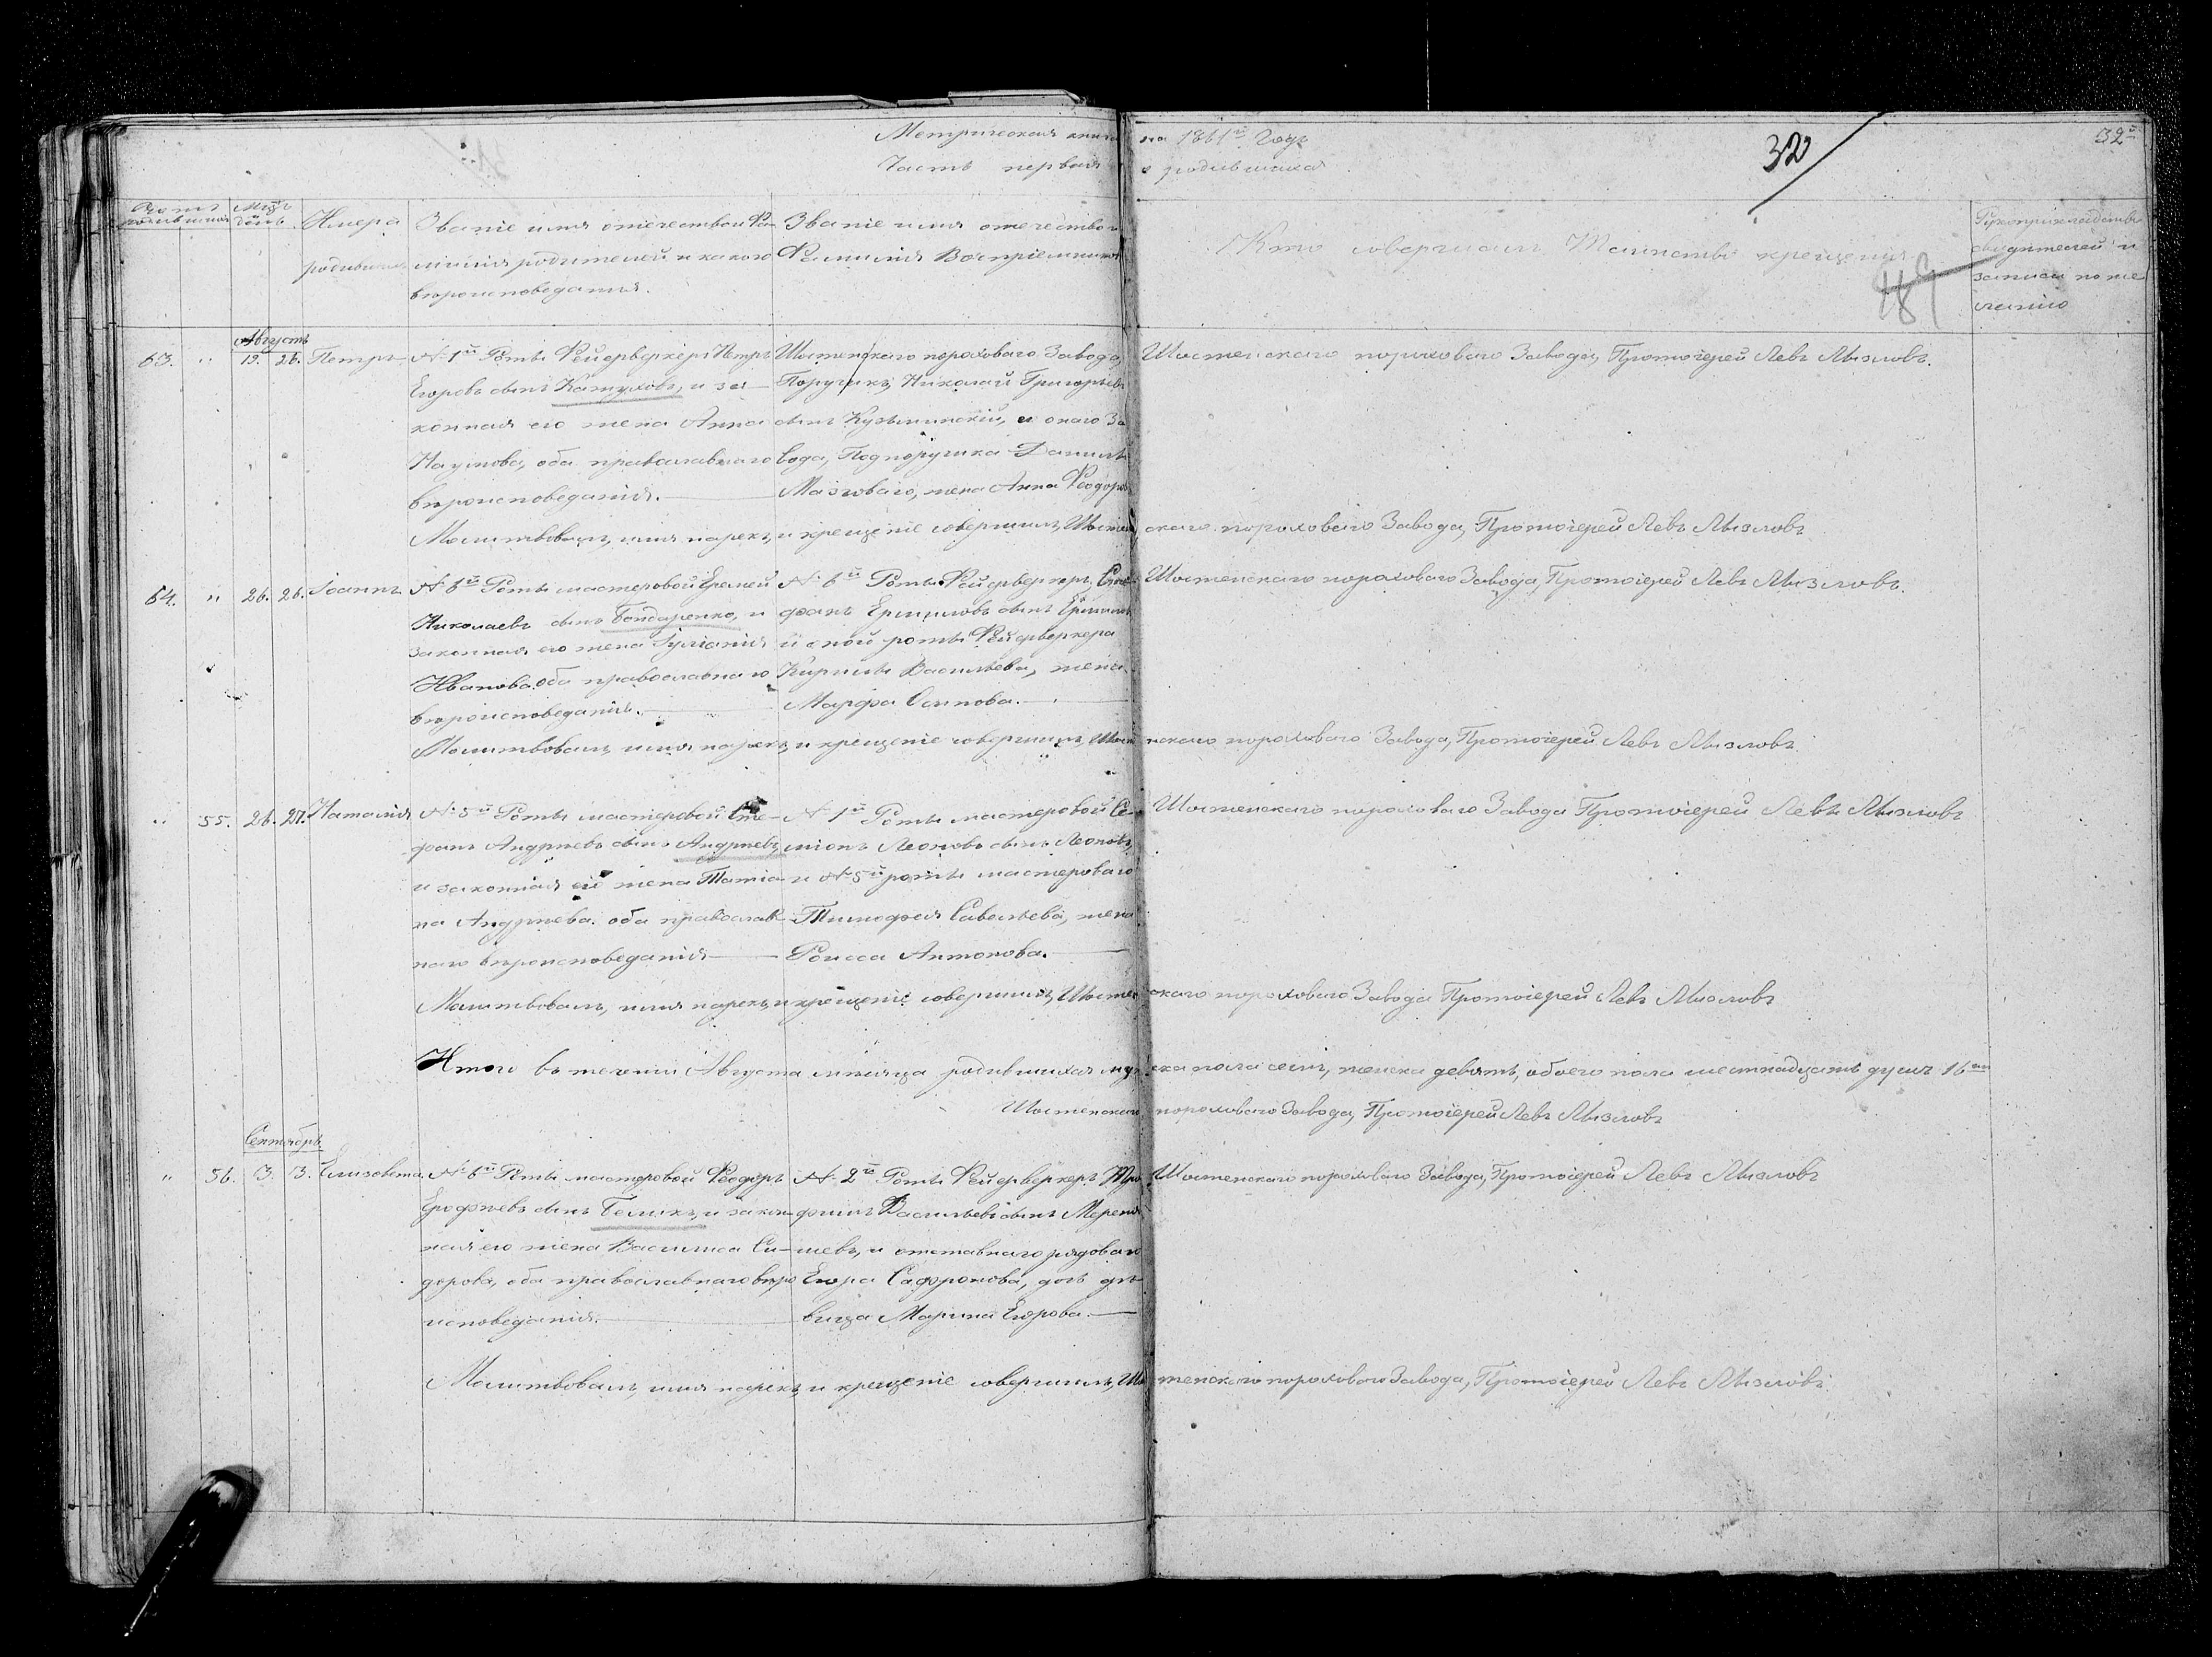 Метрическая книга на 1861й Годъ
Часть первая о родившихся
32
32й
Счетъ родившихся
Мѣсяцъ день
Имера родивших
Званіе имя отечество и Фа-
милія родителей и какого
вѣроисповеданія.
Званіе имя отечество и
Фамилія Воспріемниковъ
Кто совершалъ Таинство крещенія
Рукоприкладство
свидѣтелей и
записи по же
ланію
Августъ
63. " 19. 26. Петръ
№ 1й Роты Фейерверкеръ Петръ
Егоровъ сынъ Катуховъ, и за-
конная его жена Анна
Наумова, оба православнаго
вѣроисповеданія.
Шостенскаго пороховаго Завода,
Поручикъ Николай Григорьевъ
сынъ Кузьминскій, и онаго За
вода, Подпоручика Данила
Мазговаго, жена Анна Феодоров
Шостенскаго пороховаго Завода, Протоіерей Левъ Мызловъ.
Молитвовалъ, имя нарекъ, и крещеніе совершилъ, Шостен скаго пороховаго Завода, Протоіерей Левъ Мызловъ
64. " 26. 26. Іоаннъ.
№ 6й Роты мастеровой Еремей
Николаевъ сынъ Бондаренко, и
законная его жена Іуліанія
Иванова оба православнаго
вѣроисповеданія.
№ 6й Роты Фейерверкеръ, Сте
фанъ Ермиловъ сынъ Ермилов
и оной роты Фейерверкера
Кирилы Васильева, жена
Марфа Осипова.
Шостенскаго пороховаго Завода, Протоіерей Левъ Мызловъ.
Молитвовалъ, имя нарекъ, и крещеніе совершилъ, Шосте нскаго пороховаго Завода, Протоіерей Левъ Мызловъ.
" 55. 26. 27. Наталія
№ 5й Роты мастеровой Сте-
фанъ Андреевъ сынъ Андреевъ,
и законная его жена Татіа-
на Андреева. оба православ-
наго вѣроисповеданія
№ 1й Роты мастеровой Се-
міонъ Леоновъ сынъ Леоновъ,
и № 5й роты мастероваго
Тимофея Савельева, жена
Раисса Антонова.
Шостенскаго пороховаго Завода Протоіерей Левъ Мызловъ
Молитвовалъ, имя нарекъ, и крещеніе совершилъ, Шостен скаго пороховаго Завода Протоіерей Левъ Мызловъ
Итого въ теченіи Августа мѣсяца родившихся муж ска пола семь, женска девять, обоего пола шестнадцать душъ 16ть
Шостенскаго пороховаго Завода, Протоіерей Левъ Мызловъ
Сентябрь
" 56. 3. 3. Елизавета
№ 6й Роты мастеровой Феодоръ
Ерофѣевъ сынъ Беликъ, и закон-
ная его жена Василиса Си-
дорова, оба православнаго вѣро
исповеданія.
№ 2й Роты Фейерверкеръ Тро
фимъ Васильевъ сынъ Мереня
шевъ, и отставнаго рядоваго
Егора Сафронова, дочь дѣ-
вица Марина Егорова.
Шостенскаго пороховаго Завода, Протоіерей Левъ Мызловъ
Молитвовалъ, имя нарекъ, и крещеніе совершилъ, Шос тенскаго пороховаго Завода, Протоіерей Левъ Мызловъ.